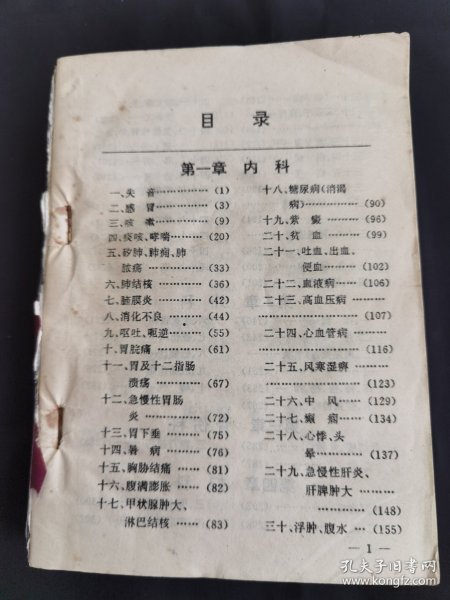 目录
第一章 内科
一、失音…………(1)
二、感冒…………(3)
三、咳嗽…………(9)
四、痰咳、哮喘……(20)
五、矽肺、肺痈、肺
脓疡…………(33)
六、肺结核………(36)
七、脑膜炎………(42)
八、消化不良……(44)
九、呕吐、呃逆……(55)
十、胃脘痛………(61)
十一、胃及十二指肠
溃疡…………(67)
十二、急慢性胃肠
炎…………(72)
十三、胃下垂……(75)
十四、暑病………(76)
十五、胸胁结痛……(81)
十六、腹满膨胀……(82)
十七、甲状腺肿大、
淋巴结核……(83)
十八、糖尿病(消渴
病)…………(90)
十九、紫癜………(96)
二十、贫血………(99)
二十一、吐血、出血、
便血…………(102)
二十二、血液病……(106)
二十三、高血压病……
…………(107)
二十四、心血管病……
…………(116)
二十五、风寒湿痹……
…………(123)
二十六、中风……(129)
二十七、癫痫……(134)
二十八、心悸、头
晕…………(137)
二十九、急慢性肝炎、
肝脾肿大……
…………(148)
三十、浮肿、腹水…(155)
— 1 —
孔夫子旧书网